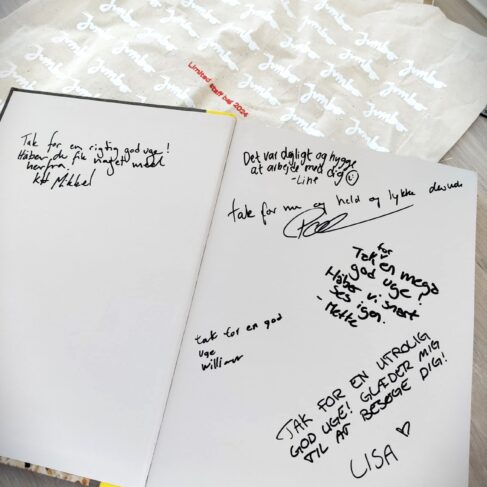 Jumbo Jumbo Jumbo Jumbo
Limited staff bag 2024
Tak for en rigtig god uge!
Håber du fik noget med
herfra
Kh Mikkel
Det var dejligt og hygge
at arbejde med dig
-Line
tak for nu og held og lykke derude
Tak for en mega
god uge!
Håber vi snart
ses igen.
- Mette
tak for en god
uge
William
TAK FOR EN UTROLIG
GOD UGE! GLÆDER MIG
TIL AT BESØGE DIG!
LISA